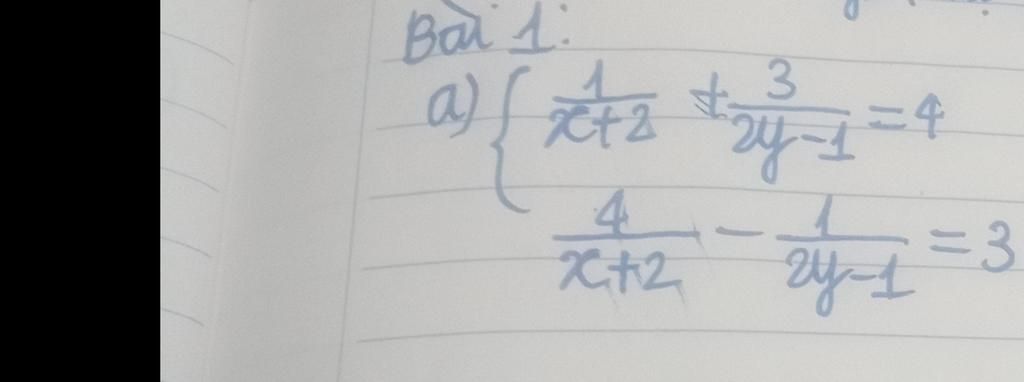 Bài 1:
a) { 1/(x+2) + 3/(2y-1) = 4
4/(x+2) - 1/(2y-1) = 3